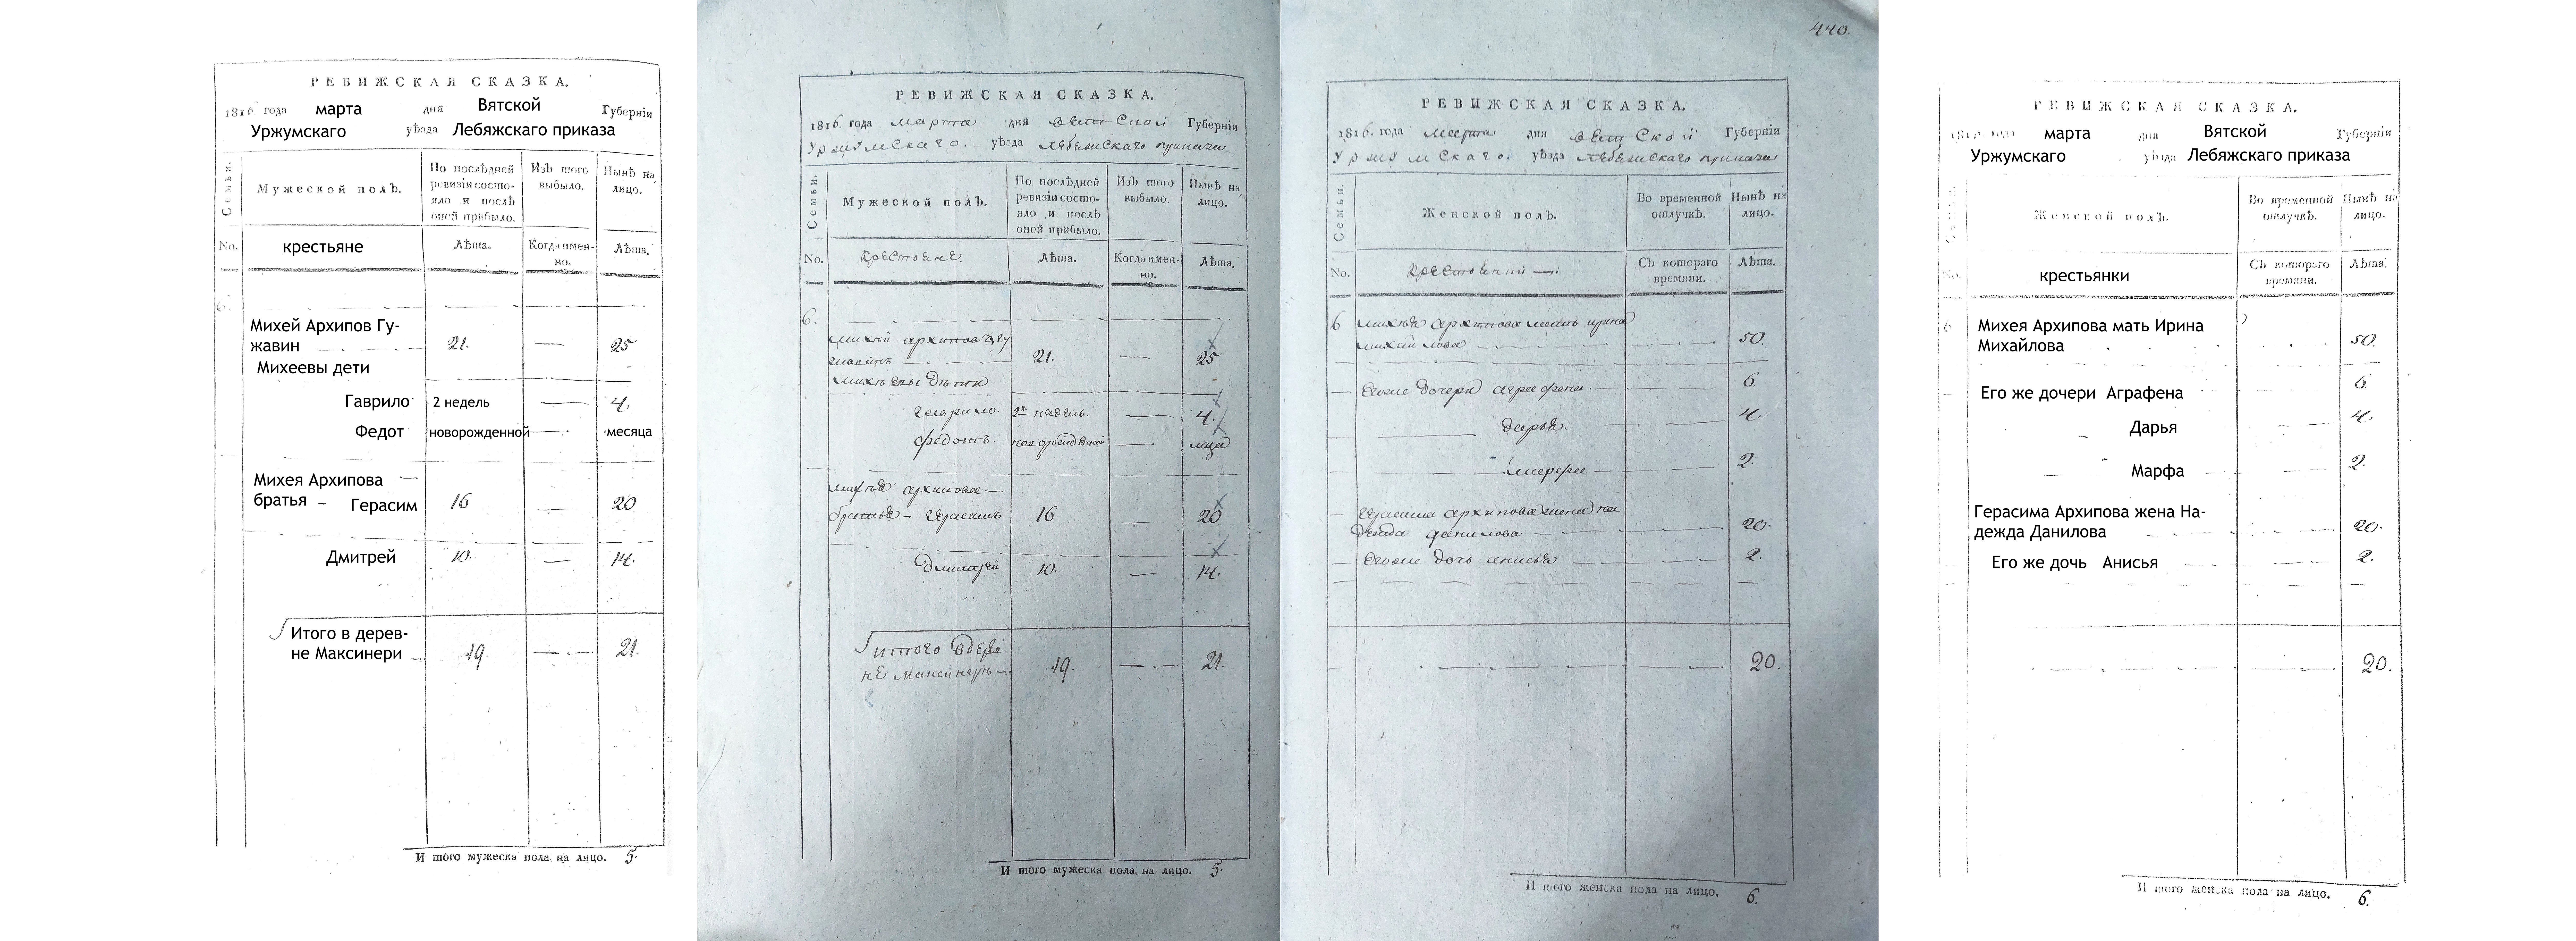 РЕВИЖСКАЯ СКАЗКА.
1816 года марта дня Вятской Губерніи
Уржумскаго уѣзда Лебяжскаго приказа
Семьи.
Мужеской полъ.
По послѣдней
ревизіи состо-
яло и послѣ
оней прибыло.
Изъ того
выбыло.
Нынѣ на
лицо.
No.
крестьяне
Лѣта.
Когда имен-
но.
Лѣта.
6.
Михей Архипов Гу-
жавин — 21. — 25
Михеевы дети
Гаврило 2 недель — 4.
Федот новорожденной — месяца
Михея Архипова —
братья – Герасим 16 — 20
Дмитрей 10. — 14.
Итого в дерев-
не Максинери 19. — 21.
И того мужеска пола на лицо. 5.
РЕВИЖСКАЯ СКАЗКА.
1816. года марта дня Вятской Губерніи
Уржумскаго. уѣзда Лебяжскаго приказа
Семьи.
Мужеской полъ.
По послѣдней
ревизіи состо-
яло и послѣ
оней прибыло.
Изъ того
выбыло.
Нынѣ на
лицо.
No.
крестьяне.
Лѣта.
Когда имен-
но.
Лѣта.
6.
михѣй архиповъ гу
жавинъ — 21. — 25
михѣевы дѣти
гаврило. 2х недѣль. — 4.
федотъ новорожденной — меца
михѣя архипова —
братья – герасимъ 16 — 20
дмитрей 10. — 14.
итого вдерев
не максинерь — 19. — 21.
И того мужеска пола на лицо. 5.
440.
РЕВИЖСКАЯ СКАЗКА.
1816. года марта дня Вятской Губерніи
Уржумскаго. уѣзда Лебяжскаго приказа
Семьи.
Женской полъ.
Во временной
отлучкѣ.
Нынѣ на
лицо.
No.
Съ котораго
времяни.
Лѣта.
6 михѣя архипова мать ирина
михайлова — 50.
его же дочери аграфена. — 6.
дарья. — 4.
марфа — 2.
герасима архипова жена на
дежда данилова — 20.
его же дочь анисья — 2.
20.
И того женска пола на лицо. 6.
РЕВИЖСКАЯ СКАЗКА.
1816 года марта дня Вятской Губерніи
Уржумскаго уѣзда Лебяжскаго приказа
Женской полъ.
Во временной
отлучкѣ.
Нынѣ на
лицо.
No.
крестьянки
Съ котораго
времяни.
Лѣта.
6
Михея Архипова мать Ирина
Михайлова 50.
Его же дочери Аграфена 6.
Дарья 4.
Марфа 2.
Герасима Архипова жена На-
дежда Данилова 20.
Его же дочь Анисья 2.
20.
И того женска пола на лицо. 6.